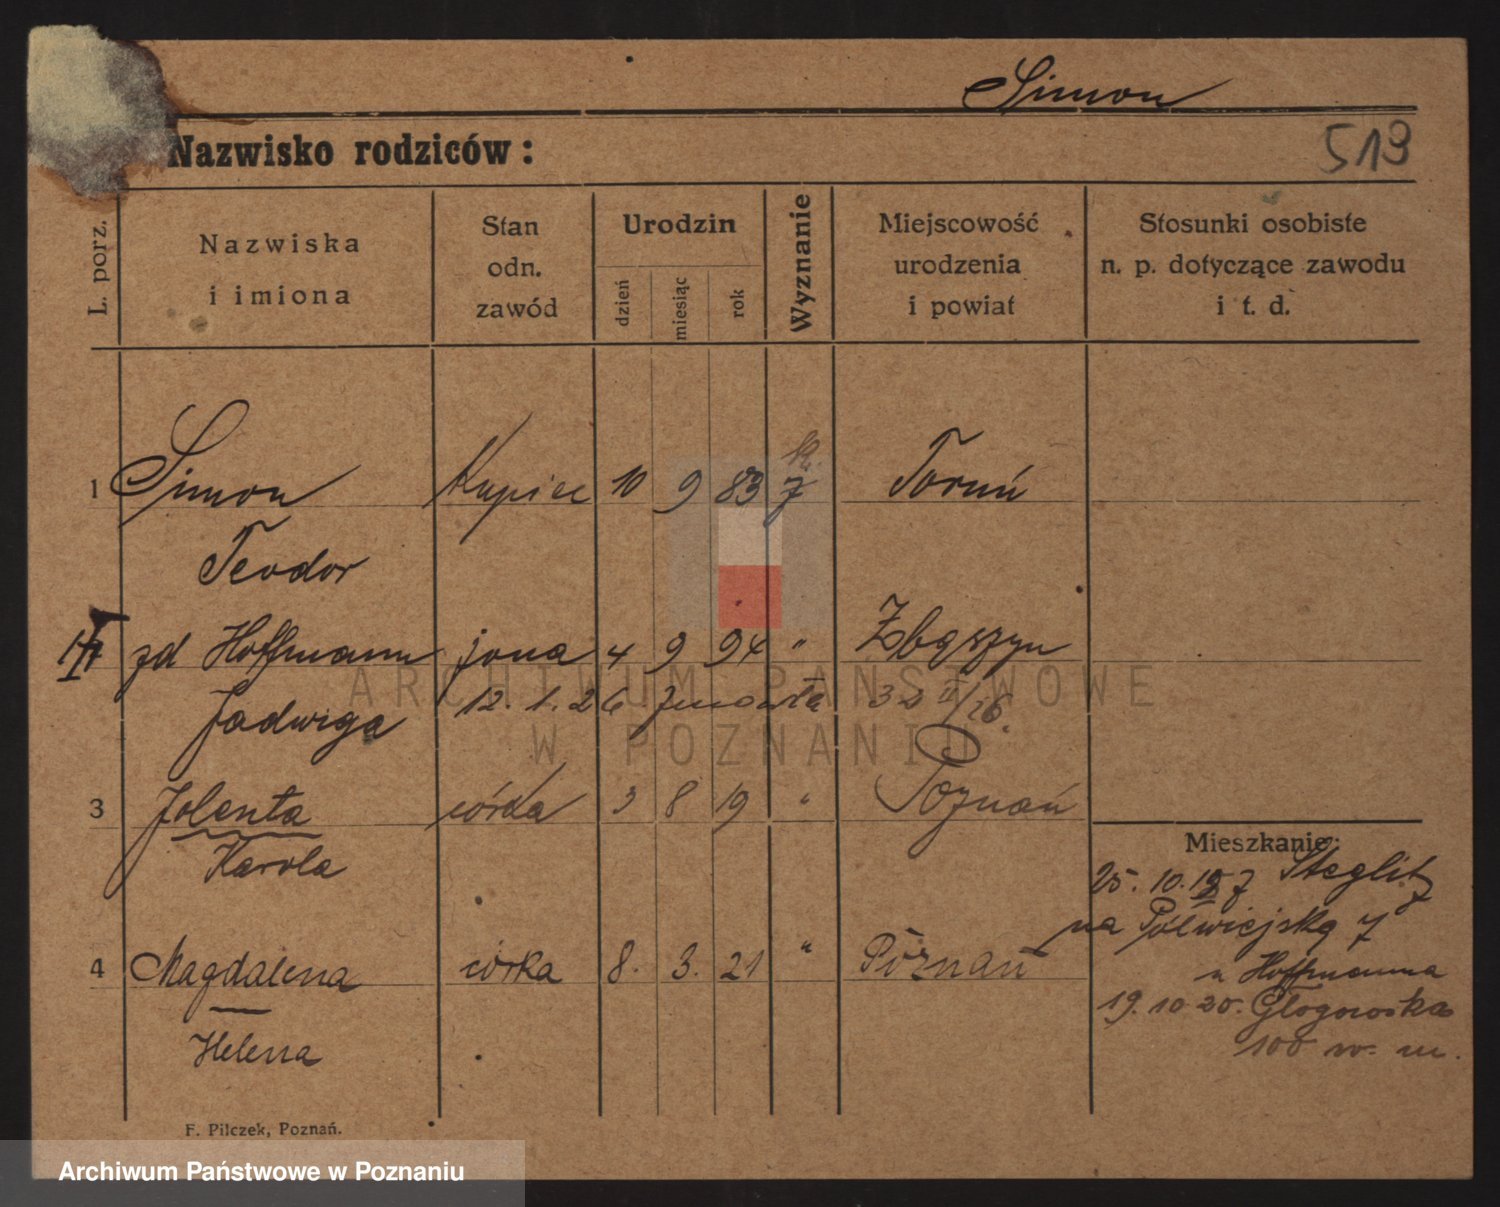 Simon
513
Nazwisko rodziców:
L. porz.
Nazwiska
i imiona
Stan
odn.
zawód
Urodzin
dzień
miesiąc
rok
Wyznanie
Miejscowość
urodzenia
i powiat
Stosunki osobiste
n. p. dotyczące zawodu
i t. d.
k.
1 Simon Kupiec 10 9 83 Toruń
Teodor
zd Hoffmann żona 4 9 94 " Zbąszyn
Jadwiga 12. 1. 26 zmarła
3 Jolenta córka 3 8 19 " Poznań
Karola
4 Magdalena córka 8. 3. 21 " Poznań
Helena
Mieszkanie:
25. 10. Steglitz
na Półwiejską 7
u Hoffmanna
19. 10. 20. Głogowska
100 w. m.
F. Pilczek, Poznań.
ARCHIWUM PAŃSTWOWE
W POZNANIU
Archiwum Państwowe w Poznaniu